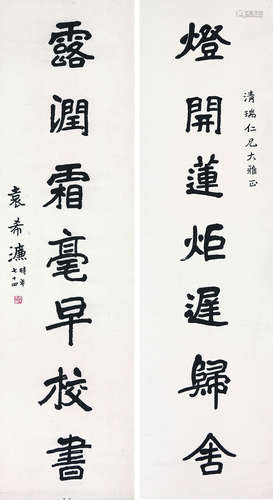 清瑞仁兄大雅正
燈開蓮炬遲歸舍
露潤霜毫早校書
袁希濂時年七十四